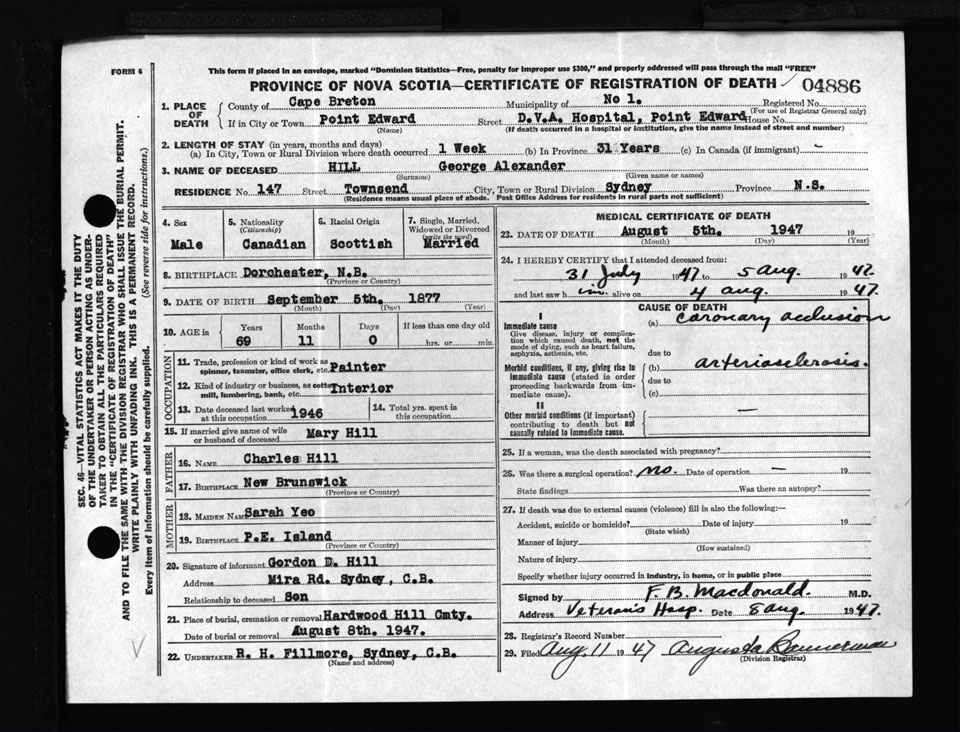 FORM 6
This form if placed in an envelope, marked "Dominion Statistics—Free, penalty for improper use $300," and properly addressed will pass through the mail "FREE"
PROVINCE OF NOVA SCOTIA—CERTIFICATE OF REGISTRATION OF DEATH 04886
1. PLACE OF DEATH
County of Cape Breton Municipality of No 1. Registered No.
(For use of Registrar General only)
If in City or Town Point Edward Street D.V.A. Hospital, Point Edward House No.
(Name) (If death occurred in a hospital or institution, give the name instead of street and number)
2. LENGTH OF STAY (in years, months and days)
(a) In City, Town or Rural Division where death occurred 1 Week (b) In Province 31 Years (c) In Canada (if immigrant) -
3. NAME OF DECEASED HILL George Alexander
(Surname) (Given name or names)
RESIDENCE No. 147 Street Townsend City, Town or Rural Division Sydney Province N.S.
(Residence means usual place of abode. Post Office Address for residents in rural parts not sufficient)
4. Sex
Male
5. Nationality
(Citizenship)
Canadian
6. Racial Origin
Scottish
7. Single, Married, Widowed or Divorced
(write the word)
Married
8. BIRTHPLACE Dorchester, N.B.
(Province or Country)
9. DATE OF BIRTH September 5th. 1877
(Month) (Day) (Year)
10. AGE in Years Months Days If less than one day old
69 11 0 hrs. or min.
OCCUPATION
11. Trade, profession or kind of work as spinner, teamster, office clerk, etc. Painter
12. Kind of industry or business, as cotton mill, lumbering, bank, etc. Interior
13. Date deceased last worked at this occupation 1946
14. Total yrs. spent in this occupation
15. If married give name of wife or husband of deceased Mary Hill
FATHER
16. NAME Charles Hill
17. BIRTHPLACE New Brunswick
(Province or Country)
MOTHER
18. MAIDEN NAME Sarah Yeo
19. BIRTHPLACE P.E. Island
(Province or Country)
20. Signature of informant Gordon D. Hill
Address Mira Rd. Sydney, C.B.
Relationship to deceased Son
21. Place of burial, cremation or removal Hardwood Hill Cmty.
Date of burial or removal August 8th. 1947.
22. UNDERTAKER R. H. Fillmore, Sydney, C.B.
(Name and address)
MEDICAL CERTIFICATE OF DEATH
23. DATE OF DEATH August 5th. 1947 19
(Month) (Day) (Year)
24. I HEREBY CERTIFY that I attended deceased from:
31 July 1947 to 5 aug. 1947.
and last saw him alive on 4 aug. 1947.
CAUSE OF DEATH
I
Immediate cause
Give disease, injury or complication which caused death, not the mode of dying, such as heart failure, asphyxia, asthenia, etc.
(a) Coronary occlusion
due to
Morbid conditions, if any, giving rise to immediate cause (stated in order proceeding backwards from immediate cause).
(b) arteriosclerosis.
due to
(c)
II
Other morbid conditions (if important) contributing to death but not causally related to immediate cause.
—
25. If a woman, was the death associated with pregnancy?
26. Was there a surgical operation? no. Date of operation — 19
State findings Was there an autopsy?
27. If death was due to external causes (violence) fill in also the following:—
Accident, suicide or homicide? Date of injury 19
(State which)
Manner of injury
(How sustained)
Nature of injury
Specify whether injury occurred in industry, in home, or in public place
Signed by F. B. Macdonald. M.D.
Address Veteran's Hosp. Date 8 aug. 1947.
28. Registrar's Record Number
29. Filed Aug. 11 1947 Augusta Bannerman
(Division Registrar)
SEC. 46—VITAL STATISTICS ACT MAKES IT THE DUTY
OF THE UNDERTAKER OR PERSON ACTING AS UNDER-
TAKER TO OBTAIN ALL THE PARTICULARS REQUIRED
IN THE "CERTIFICATE OF REGISTRATION OF DEATH"
AND TO FILE THE SAME WITH THE DIVISION REGISTRAR WHO SHALL ISSUE THE BURIAL PERMIT.
WRITE PLAINLY WITH UNFADING INK. THIS IS A PERMANENT RECORD.
Every item of information should be carefully supplied. (See reverse side for instructions.)